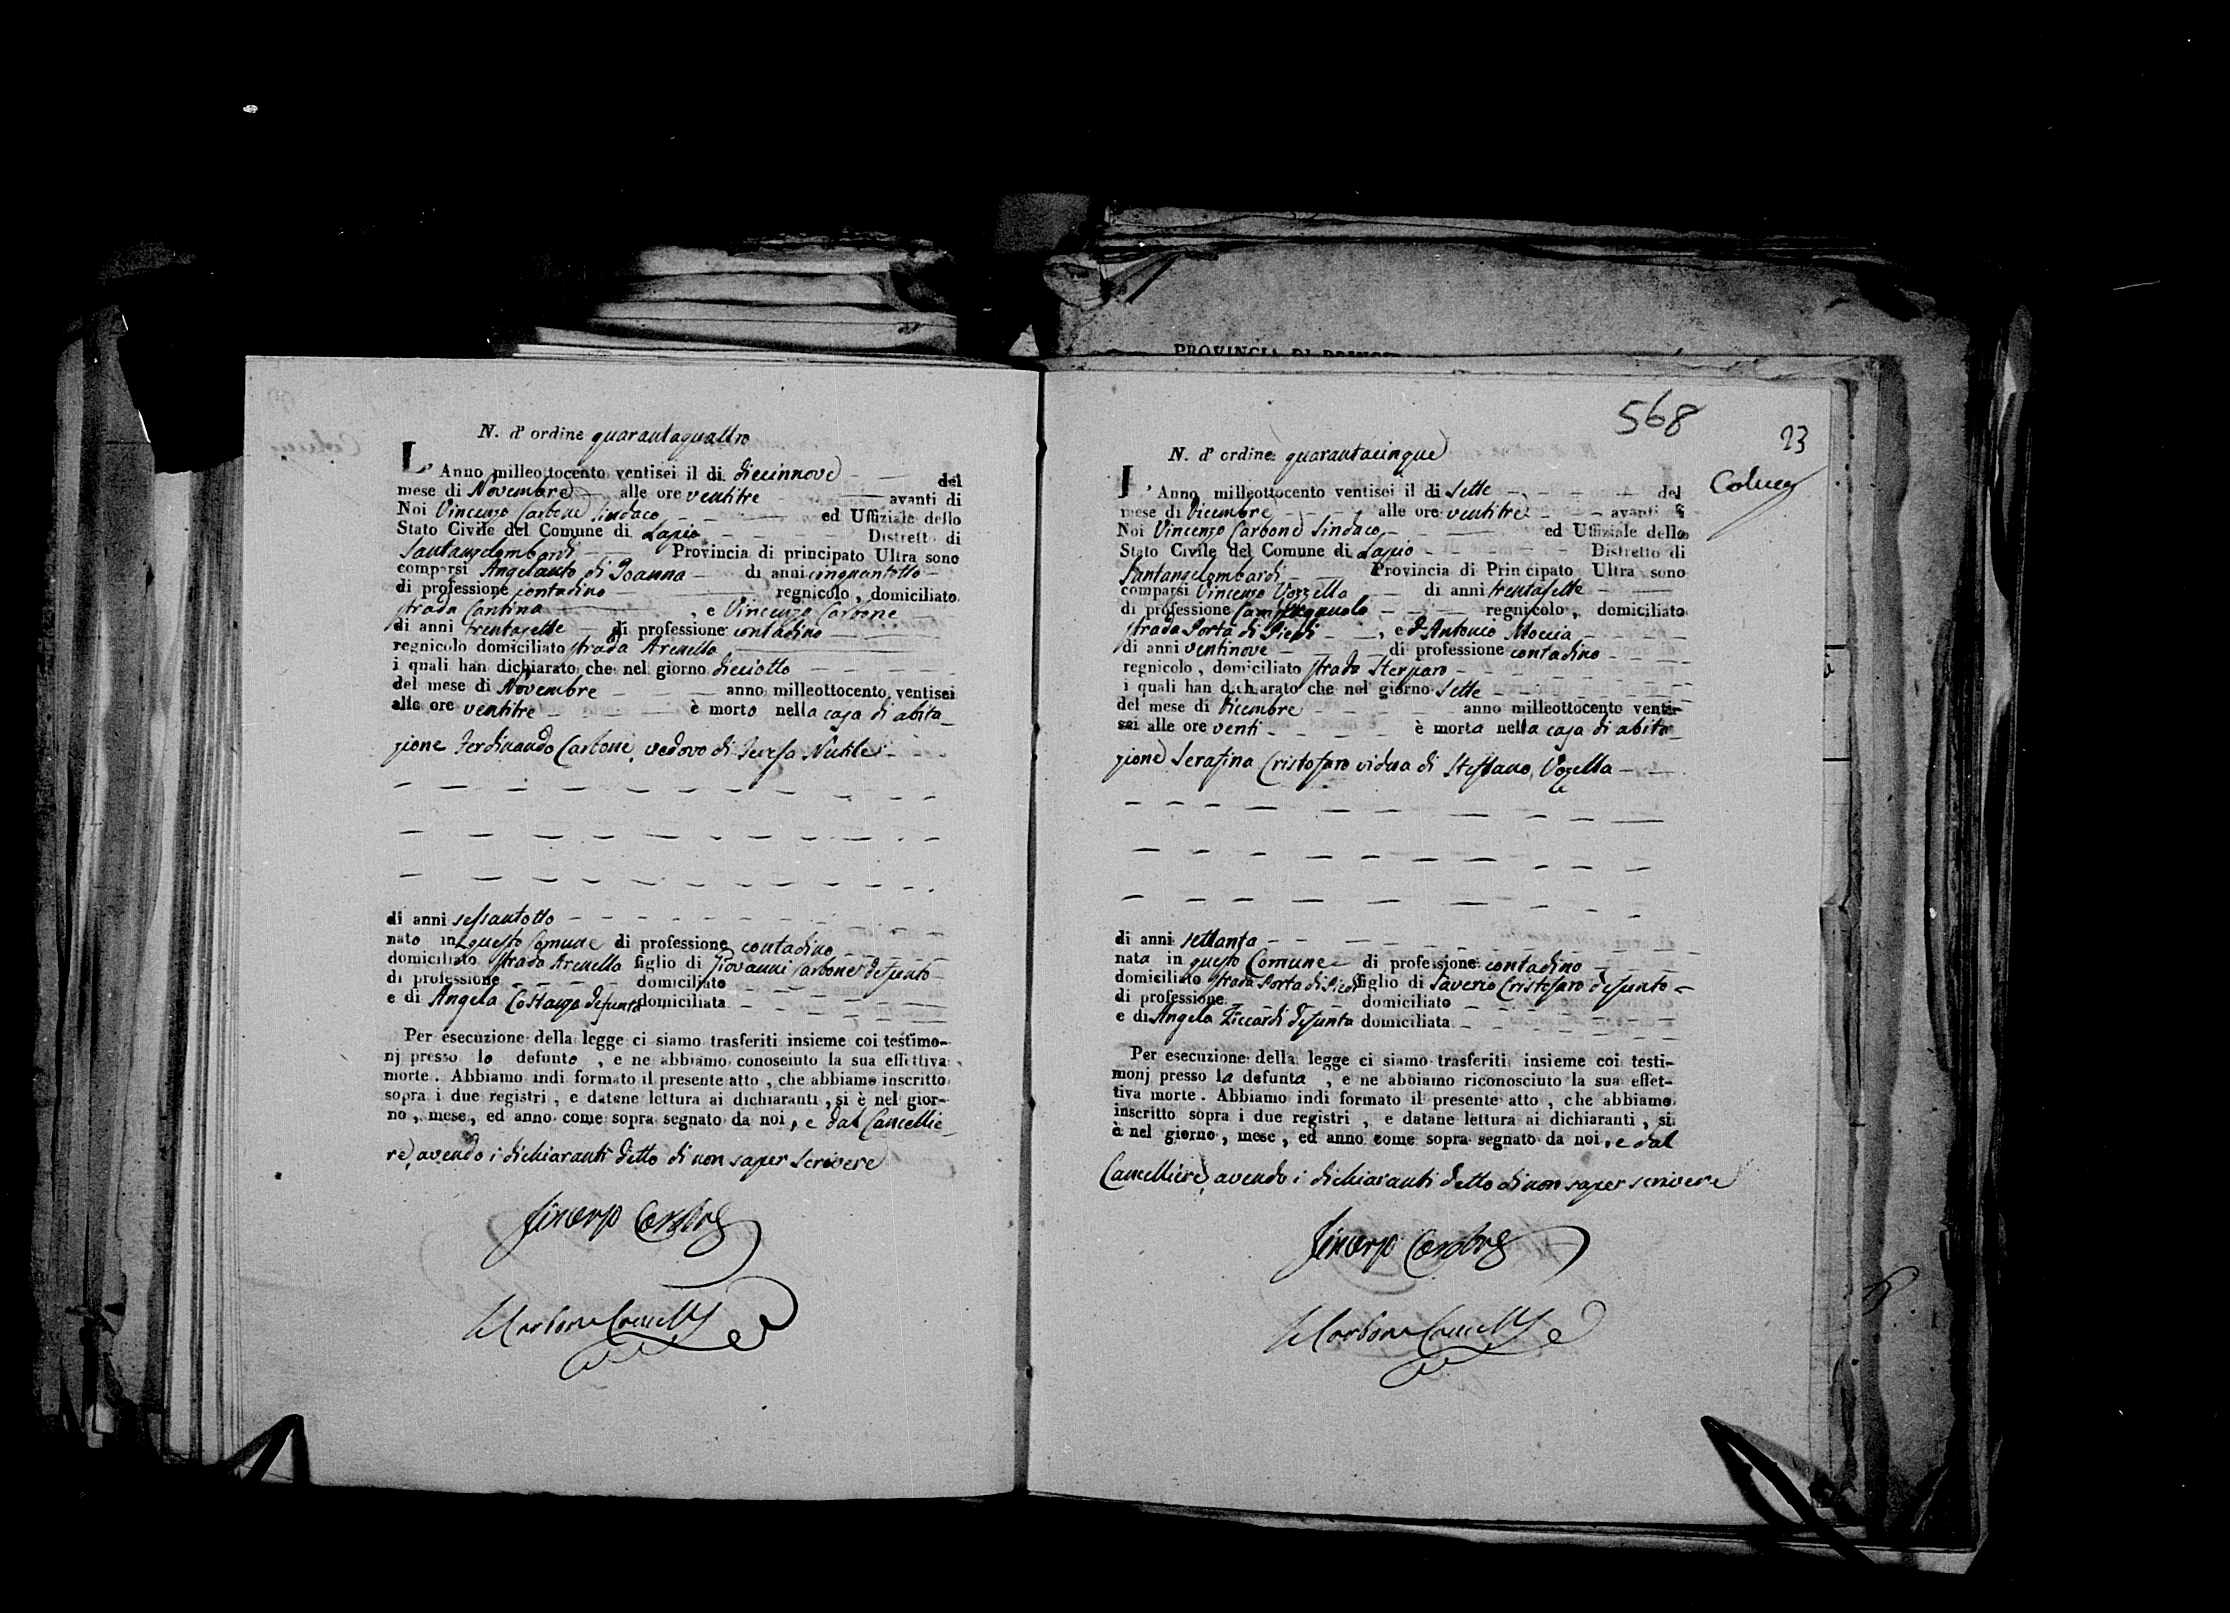 N. d' ordine quarantaquattro
L' Anno milleottocento ventisei il di diecinnove del
mese di Novembre alle ore ventitre avanti di
Noi Vincenzo Carbone Sindaco ed Uffiziale dello
Stato Civile del Comune di Lapio Distrett. di
Santangelombardi Provincia di principato Ultra sono
comparsi Angelanto di Ioanna di anni cinquantotto
di professione contadino regnicolo, domiciliato
strada Cantina, e Vincenzo Carbone
di anni trentasette di professione contadino
regnicolo domiciliato strada Arenella
i quali han dichiarato che nel giorno dieciotto
del mese di Novembre anno milleottocento ventisei
alle ore ventitre è morto nella casa di abita_
zione Ferdinando Carbone vedovo di Teresa Nutile
di anni sessantotto
nato in questo Comune di professione contadino
domiciliato strada Arenella figlio di Giovanni Carbone defunto
di professione domiciliato
e di Angela Costanza defunta domiciliata
Per esecuzione della legge ci siamo trasferiti insieme coi testimo-
nj presso lo defunto, e ne abbiamo conosciuto la sua effettiva
morte. Abbiamo indi formato il presente atto, che abbiamo inscritto
sopra i due registri, e datene lettura ai dichiaranti, si è nel gior-
no, mese, ed anno come sopra segnato da noi, e dal Cancellie_
re, avendo i dichiaranti detto di non saper scrivere
Vincenzo Carbone
Carbone Cancell
PROVINCIA DI
568
23
N. d' ordine quarantacinque
L' Anno milleottocento ventisei il di sette del
mese di Dicembre alle ore ventitre avanti
Noi Vincenzo Carbone Sindaco ed Uffiziale dello
Stato Civile del Comune di Lapio Distretto di
Santangelombardi Provincia di Principato Ultra sono
comparsi Vincenzo Vozzella di anni trentasette
di professione regnicolo, domiciliato
strada Porta di Piedi, e D Antonio Moccia
di anni ventinove di professione contadino
regnicolo, domiciliato strada Sterparo
i quali han dichiarato che nel giorno sette
del mese di Dicembre anno milleottocento venti-
sei alle ore venti è morta nella casa di abita_
zione Serafina Cristofaro vidua di Steffano Vozella
di anni settanta
nata in questo Comune di professione contadino
domiciliato strada Porta di Piedi figlio di Saverio Cristofaro defunto
di professione domiciliato
e di Angela Ziccardi defunta domiciliata
Per esecuzione della legge ci siamo trasferiti insieme coi testi-
monj presso la defunta, e ne abbiamo riconosciuto la sua effet-
tiva morte. Abbiamo indi formato il presente atto, che abbiamo
inscritto sopra i due registri, e datane lettura ai dichiaranti, si
è nel giorno, mese, ed anno come sopra segnato da noi, e dal
Cancelliere, avendo i dichiaranti detto di non saper scrivere
Vincenzo Carbone
Carbone Cancell